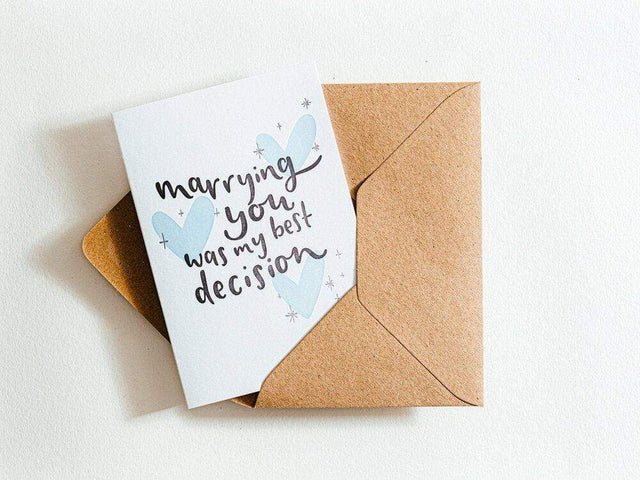 marrying
you
was my best
decision